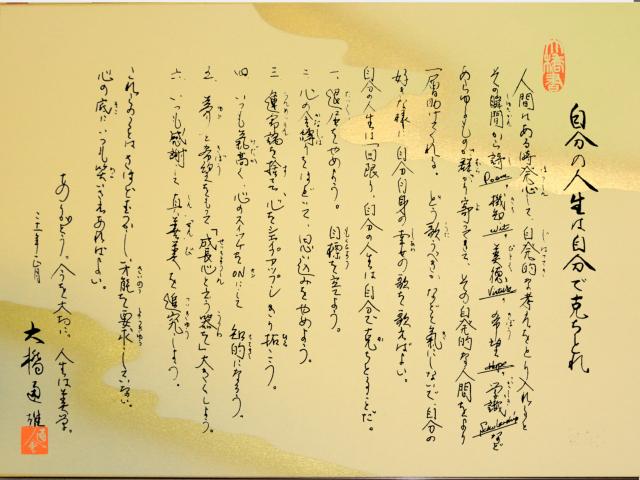 自分の人生は自分で克ちとれ
人間はある時発心して、自発的な考えをとり入れると
その瞬間から詩 Poem、機知 Wit、美徳 Virtue、希望 Hope、学識 Scholarship など
あらゆるものが群がり寄ってきて、その自発的な人間をより
一層助けてくれる。どう歌うべきかなどを気にしないで自分の
好きな様に自分自身の幸せの歌を歌えばよい。
自分の人生は一回限り、自分の人生は自分で克ちとることだ。
一、退屈をやめよう。目標を立てよう。
二、心の金縛りをほどいて、思い込みをやめよう。
三、運命論を捨て、心をシェイプアップしきり拓こう。
四、いつも気高く、心のスイッチをONにして知的になろう。
五、夢と希望をもって「成長心と云う器を」大きくしよう。
六、いつも感謝して真、善、美を追究しよう。
これらのことはさほどむずかしい才能を要求していない。
心の底にいつも笑いさえあればよい。
ありがとう。今を大切に、人生は美学。
二十一年二月
大橋